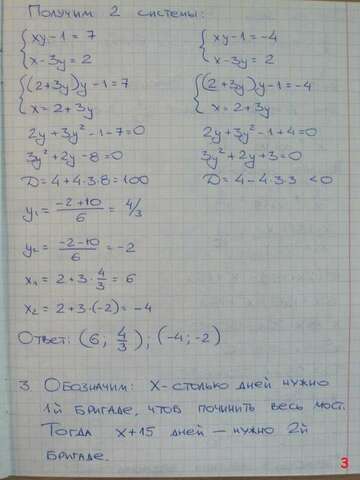 Получим 2 системы:
{ xy-1 = 7      { xy-1 = -4
{ x-3y = 2      { x-3y = 2
{ (2+3y)y-1 = 7      { (2+3y)y-1 = -4
{ x = 2+3y      { x = 2+3y
2y+3y²-1-7=0      2y+3y²-1+4=0
3y²+2y-8=0      3y²+2y+3=0
D=4+4·3·8=100      D=4-4·3·3 <0
y₁ = (-2+10)/6 = 4/3
y₂ = (-2-10)/6 = -2
x₁ = 2+3·4/3 = 6
x₂ = 2+3·(-2) = -4
Ответ: (6; 4/3); (-4; -2)
3 Обозначим: X-столько дней нужно
1й бригаде, чтоб починить весь мост.
Тогда x+15 дней — нужно 2й
бригаде.
3